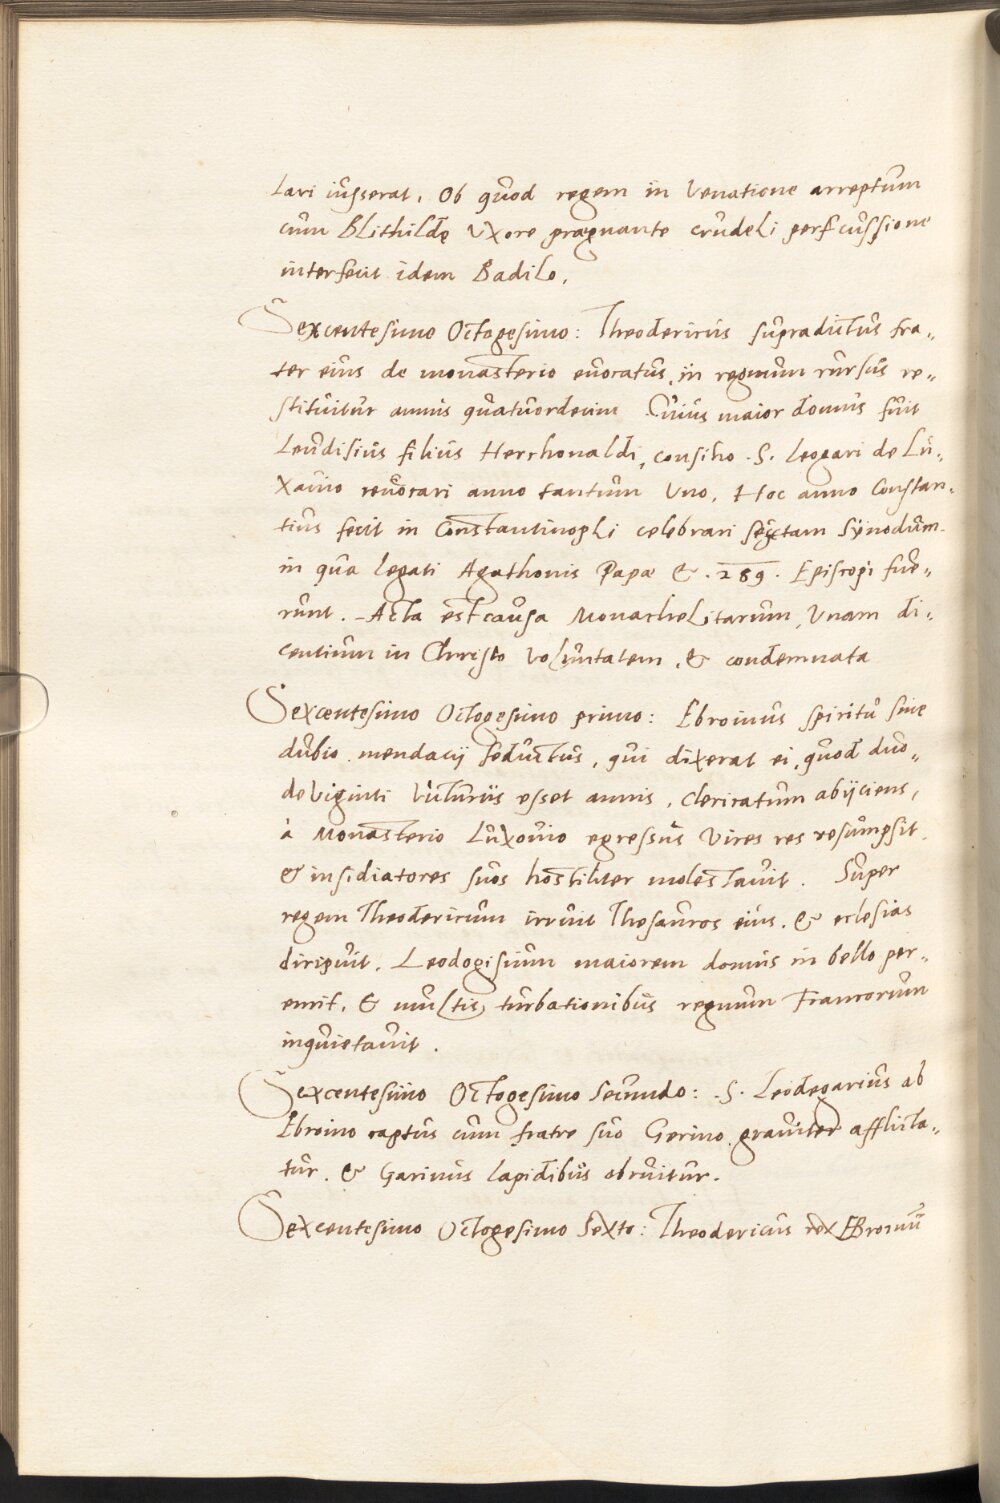 lari iusserat. Ob quod regem in Venatione arreptum
cum Blithildę Vxore prægnante crudeli perfcussione
interfecit idem Badilo.
Sexcentesimo Octogesimo: Theodericus supradictus fra-
ter eius de monasterio euocatus, in regnum rursus re-
stituitur annis quatuordecim. Cuius maior domus fuit
Leudisius filius Herchonaldi, consilio .S. Leogari de Lu-
xauio reuocari anno tantum Vno. Hoc anno Constan-
tius fecit in Constantinopoli celebrari sextam Synodum
in qua legati Agathonis Papæ & .289. Episcopi fue-
runt. Acta est causa Monachelitarum, Vnam di-
centium in Christo Voluntatem, & condemnata
Sexcentesimo Octogesimo primo: Ebroinus spiritu siue
dubio mendacij seductus, qui dixerat ei, quod duo-
deViginti Victurus esset annis, Clericatum abijciens,
à Monasterio Luxouio egressus Vires res resumpsit
& insidiatores suos hostiliter molestauit. Super
regem Theodericum irruit Thesauros eius, & eclesias
diripuit. Leodogisium maiorem domus in bello per-
emit, & multis turbationibus regnum Francorum
inquietauit.
Sexcentesimo Octogesimo secundo: .S. Leodegarius ab
Ebroino captus cum fratre suo Gerino grauiter afflicta-
tur, & Garinus lapidibus obruitur.
Sexcentesimo Octogesimo Sexto: Theodericus rex EBroinū